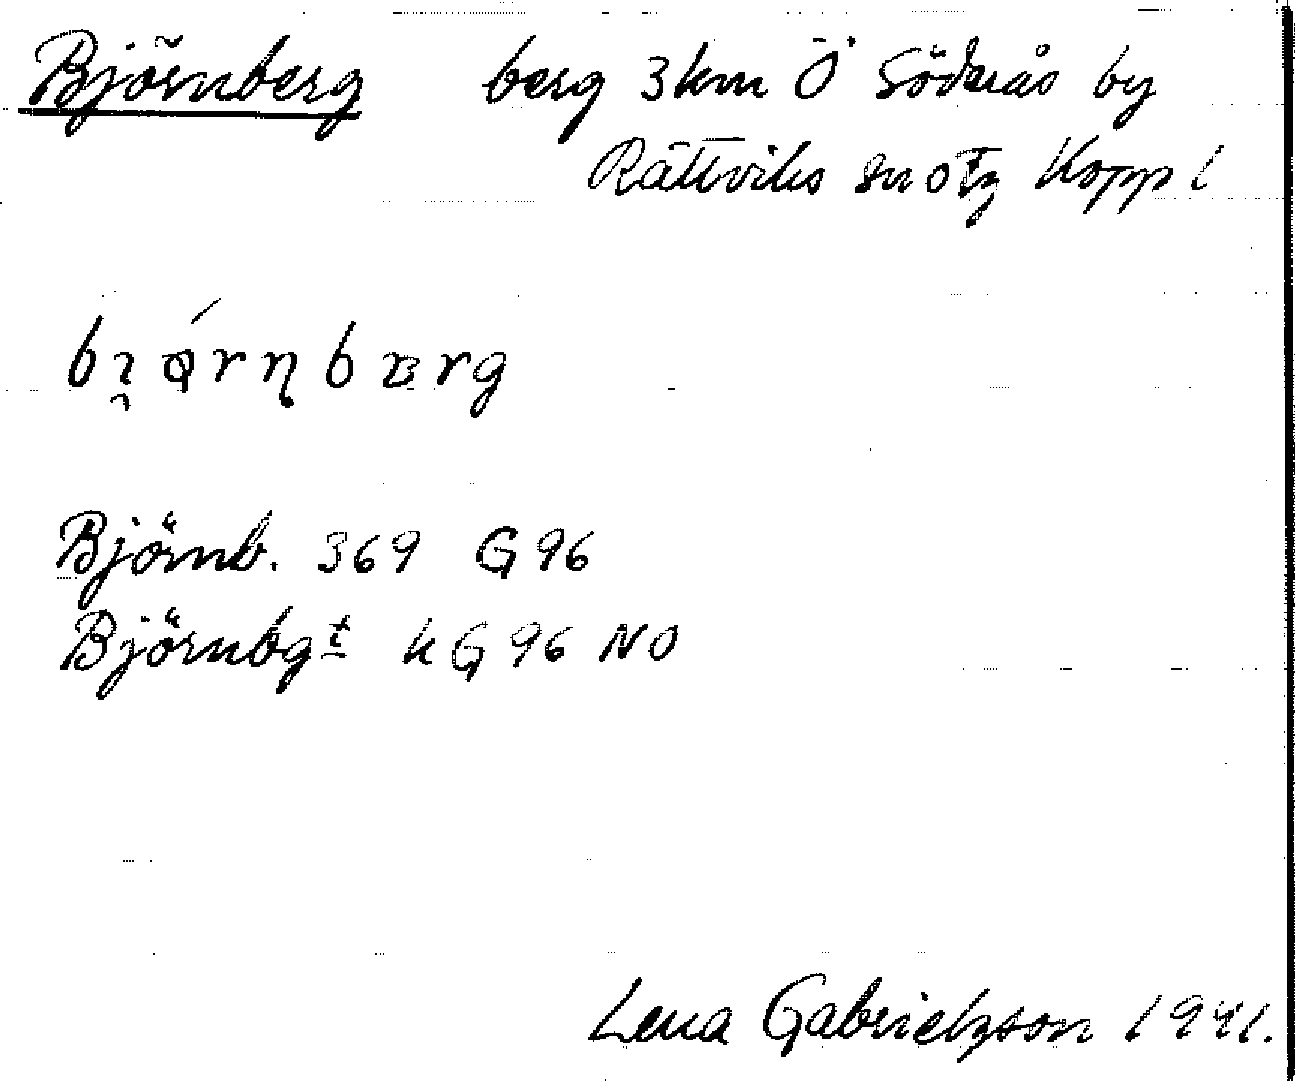 Björnberg berg 3 km Ö Söderås by
Rättviks sn otg Kopp l
Björnb. 369 G 96
Björnbgt k G 96 NO
Lena Gabrielzson 1941.